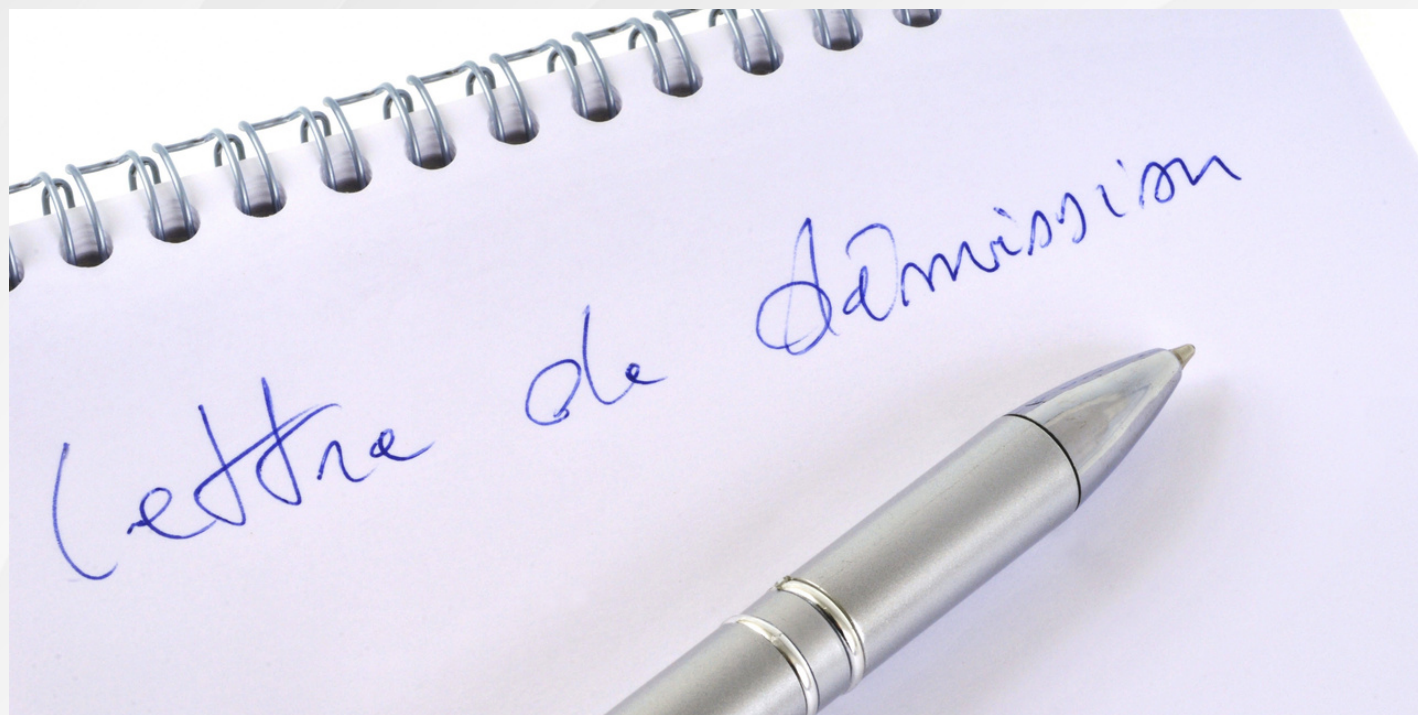 Lettre de démission